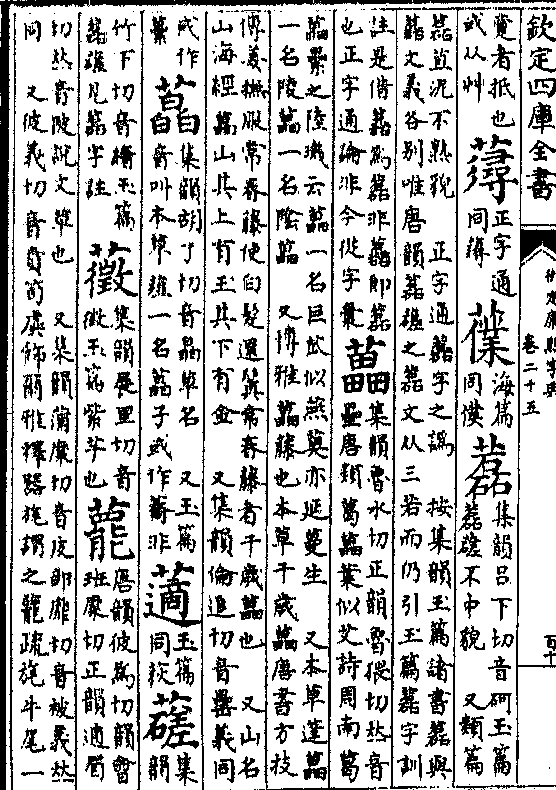 欽定四庫全書
御定康熙字典
卷二十五
百十
覺者抵也
或从艸
蕁
正字通
同䔒
䕚
海篇
同㒒
䕢
集韻呂下切音砢玉篇
䕢磋不中貌　又類篇
䕢苴沉不熟貌　正字通䕢字之譌　按集韻玉篇諸書䕢與
䕢文義各別唯唐韻䕢䕢之䕢文从三若而仍引玉篇䕢字訓
註是借䕢爲䕢非䕢卽䕢
也正字通論非今從字彙
藟
集韻魯水切正韻魯猥切𠀤音
壘唐類葛藟葉似艾詩周南葛
藟纍之陸璣云藟一名巨苽似燕薁亦延蔓生　又本草蓬藟
一名陵藟一名陰藟　又博雅藟藤也本草千歲藟唐書方技
傳姜撫服常春藤使白髮還鬒常春藤者千歲藟也　又山名
山海經藟山其上有玉其下有金　又集韻倫追切音纍義同
或作
蘽
藠
集韻胡了切音皛草名　又玉篇
音叫本草薤一名藠子或作蕎非
䕌
玉篇
同荻
䕢
集
韻
竹下切音檛玉篇
䕢䕢見䕢字註
藢
集韻展里切音
徵玉篇紫芋也
䕗
唐韻彼爲切韻會
班縻切正韻逋眉
切𠀤音陂說文草也　又集韻蒲糜切音皮部靡切音被義𠀤
同　又彼義切音賁筍虡飾爾雅釋器旄謂之䕗疏旄牛尾一